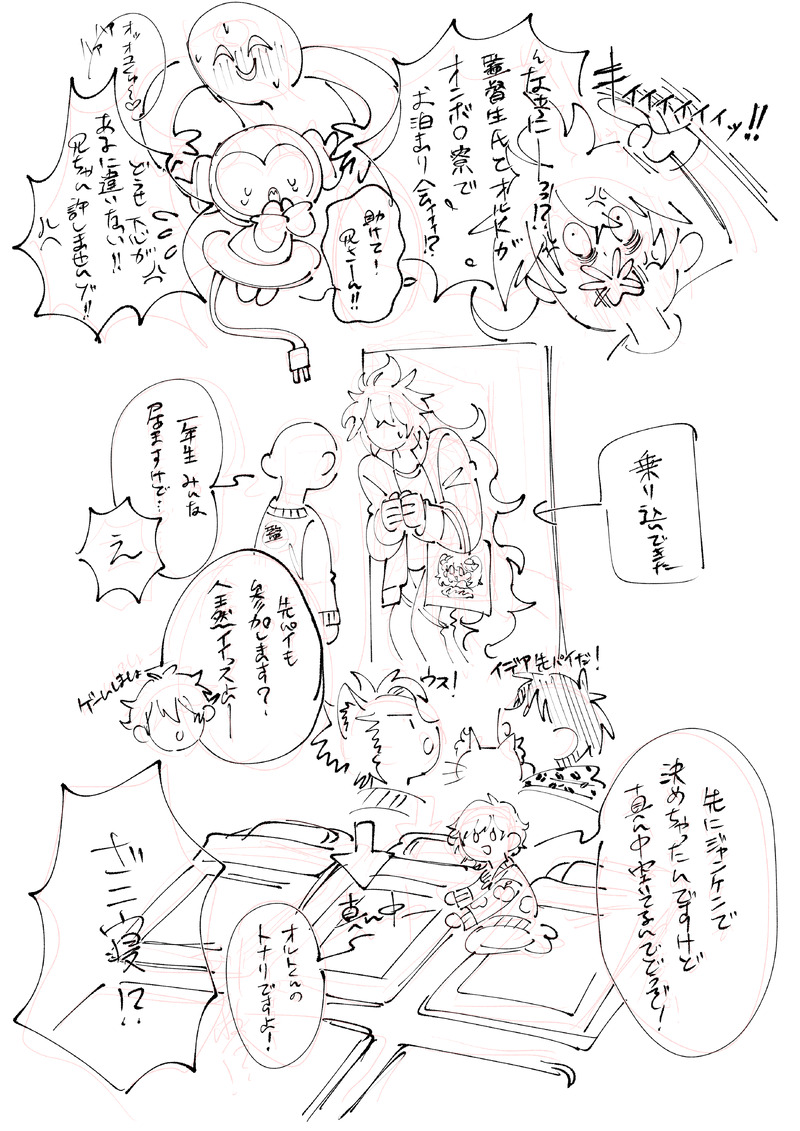 キイイイイイイッ!!
んなっ…に———っ!?
監督生氏とオルトが
オンボロ寮で
お泊まり会ォォ!?
オッオユゥ～♡
ハァ
ハァ
助けて!
兄さーん!!
どうせ下心が
あるに違いない!!
兄ちゃん許しませんゾ!!
乗り込んできた
一年生みんな
居ますけど…
え
監
先パイも
参加します?
全然イイっスよー
ゲームしましょ
ウス!
イデア先パイだ!
先にジャンケンで
決めちゃったんですけど
真ん中空いてるんでどうぞ!
真ん中
オルトくんの
トナリですよ!
ザコ寝!?